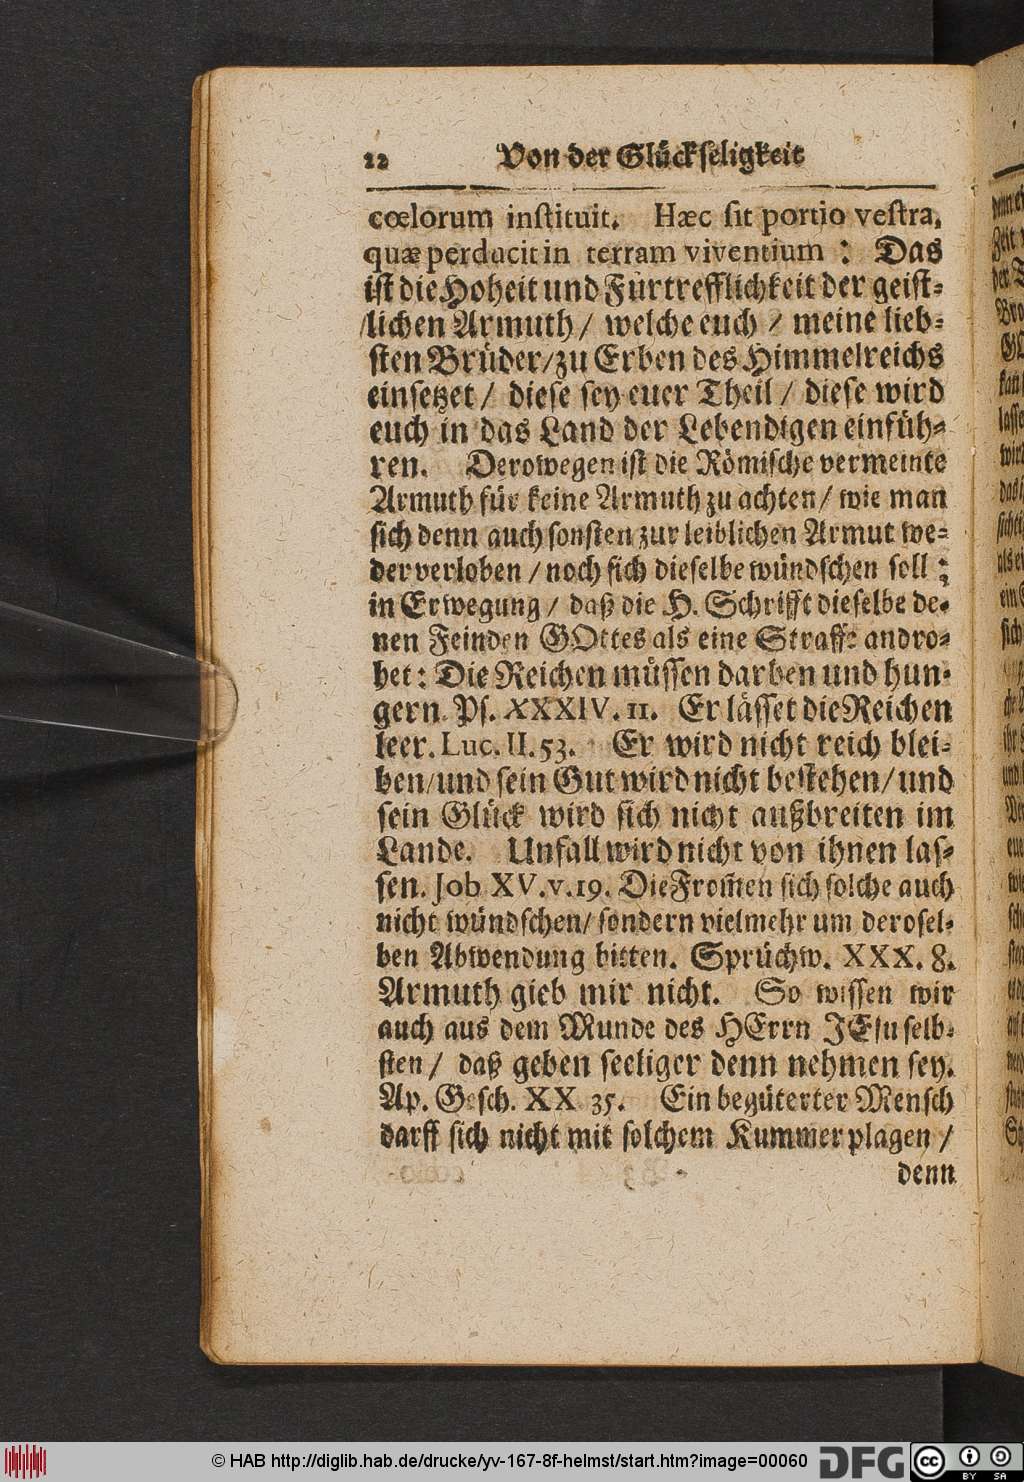 22 Von der Glückseligkeit
cœlorum instituit. Hæc sit portio vestra,
quæ perducit in terram viventium : Das
ist die Hoheit und Fürtrefflichkeit der geist-
lichen Armuth / welche euch / meine lieb-
sten Brüder / zu Erben des Himmelreichs
einsetzet / diese sey euer Theil / diese wird
euch in das Land der Lebendigen einfüh-
ren. Derowegen ist die Römische vermeinte
Armuth für keine Armuth zu achten / wie man
sich denn auch sonsten zur leiblichen Armut we-
der verloben / noch sich dieselbe wündschen soll ;
in Erwegung / daß die H. Schrifft dieselbe de-
nen Feinden GOttes als eine Straffe andro-
het : Die Reichen müssen darben und hun-
gern. Ps. XXXIV. 11. Er lässet die Reichen
leer. Luc. II. 53. Er wird nicht reich blei-
ben / und sein Gut wird nicht bestehen / und
sein Glück wird sich nicht außbreiten im
Lande. Unfall wird nicht von ihnen las-
sen. Job XV. v. 19. Die From̃en sich solche auch
nicht wündschen / sondern vielmehr um derosel-
ben Abwendung bitten. Sprüchw. XXX. 8.
Armuth gieb mir nicht. So wissen wir
auch aus dem Munde des HErrn JEsu selb-
sten / daß geben seeliger denn nehmen sey.
Ap. Gesch. XX 35. Ein begüterter Mensch
darff sich nicht mit solchem Kummer plagen /
denn
© HAB http://diglib.hab.de/drucke/yv-167-8f-helmst/start.htm?image=00060
DFG
cc BY SA